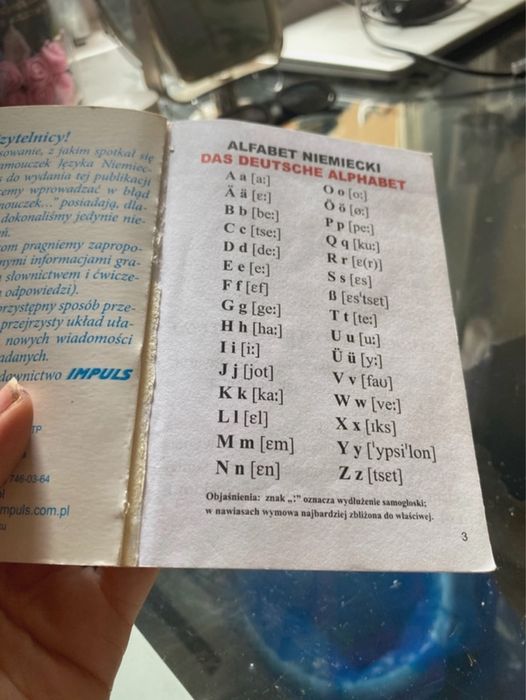 zytelnicy!
sowanie, z jakim spotkał się
amouczek Języka Niemiec-
do wydania tej publikacji
emy wprowadzać w błąd
nouczek..." posiadają, dla-
dokonaliśmy jedynie nie-
ń.
om pragniemy zapropo-
nymi informacjami gra-
słownictwem i ćwicze-
odpowiedzi).
rzystępny sposób prze-
przejrzysty układ uła-
nowych wiadomości
adanych.
downictwo IMPULS
TP
746-03-64
pl
mpuls.com.pl
ALFABET NIEMIECKI
DAS DEUTSCHE ALPHABET
A a [a:]
Ä ä [ɛ:]
B b [be:]
C c [tse:]
D d [de:]
E e [e:]
F f [ɛf]
G g [ge:]
H h [ha:]
I i [i:]
J j [jot]
K k [ka:]
L l [ɛl]
M m [ɛm]
N n [ɛn]
O o [o:]
Ö ö [ø:]
P p [pe:]
Q q [ku:]
R r [ɛ(r)]
S s [ɛs]
ß [ɛs'tsɛt]
T t [te:]
U u [u:]
Ü ü [y:]
V v [faʊ]
W w [ve:]
X x [ɪks]
Y y ['ypsi'lon]
Z z [tsɛt]
Objaśnienia: znak „:" oznacza wydłużenie samogłoski;
w nawiasach wymowa najbardziej zbliżona do właściwej.
3